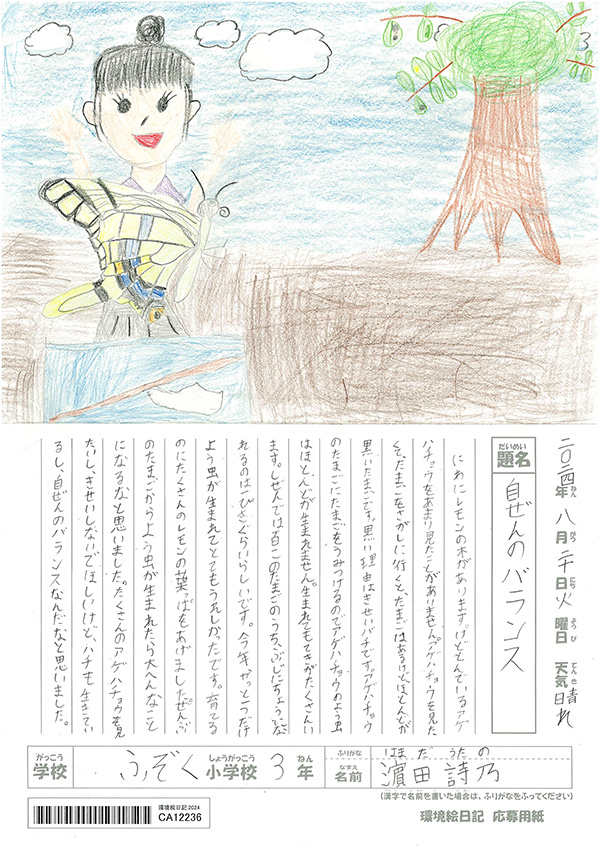 二〇二四年 八月 二十日 火曜日 天気 晴れ
ねん がつ にち ようび てんき
だいめい
題名
自ぜんのバランス
にわにレモンの木があります。けどとんでいるアゲ
ハチョウをあまり見たことがありません。アゲハチョウを見た
くて、たまごをさがしに行くと、たまごはあるけど、ほとんどが
黒いたまごです。黒い理由はきせいバチです。アゲハチョウ
のたまごにたまごをうみつけるのでアゲハチョウのよう虫
はほとんどが生まれません。生まれてもてきがたくさんい
ます。しぜんでは百このたまごのうち、ぶじにちょうにな
れるのは一ぴきぐらいらしいです。今年やっと一つだけ
よう虫が生まれてとてもうれしかったです。育てる
のにたくさんのレモンの葉っぱをあげました。ぜんぶ
のたまごからよう虫が生まれたら大へんなこと
になるなと思いました。たくさんのアゲハチョウを見
たいし、きせいしないでほしいけど、ハチも生きてい
るし、自ぜんのバランスなんだなと思いました。
がっこう
学校
ふぞく
しょうがっこう
小学校
3
ねん
年
ふりがな
はまだ うたの
なまえ
名前
濵田 詩乃
(漢字で名前を書いた場合は、ふりがなをふってください)
環境絵日記2024
CA12236
環境絵日記 応募用紙